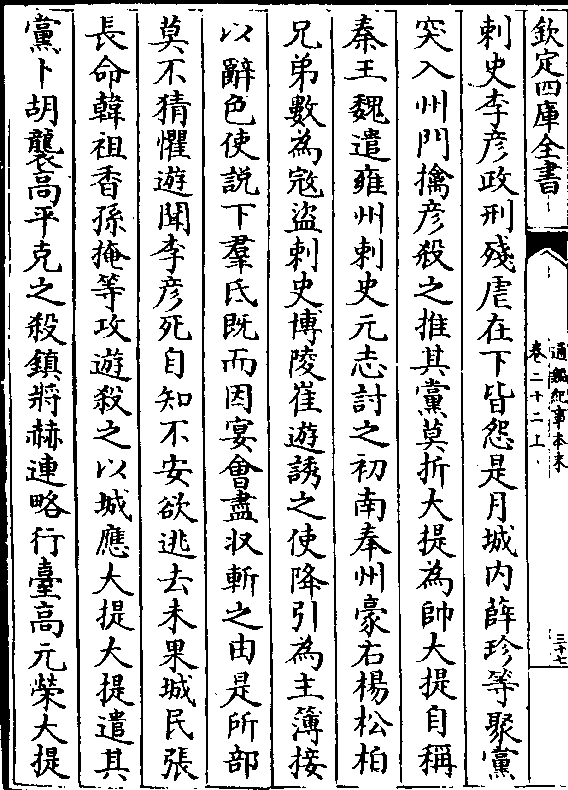 欽定四庫全書
通鑑紀事本末
卷二十二上
三十七
刺史李彦政刑殘虐在下皆怨是月城内薛珍等聚黨
突入州門擒彦殺之推其黨莫折大提為帥大提自稱
秦王魏遣雍州刺史元志討之初南秦州豪右楊松柏
兄弟數為寇盜刺史博陵崔遊誘之使降引為主簿接
以辭色使説下羣氐既而因宴會盡收斬之由是所部
莫不猜懼遊聞李彦死自知不安欲逃去未果城民張
長命韓祖香孫掩等攻遊殺之以城應大提大提遣其
黨卜胡襲高平克之殺鎮將赫連略行臺高元榮大提